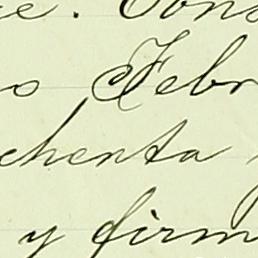 e. Cons
o Febr
chenta
y firm